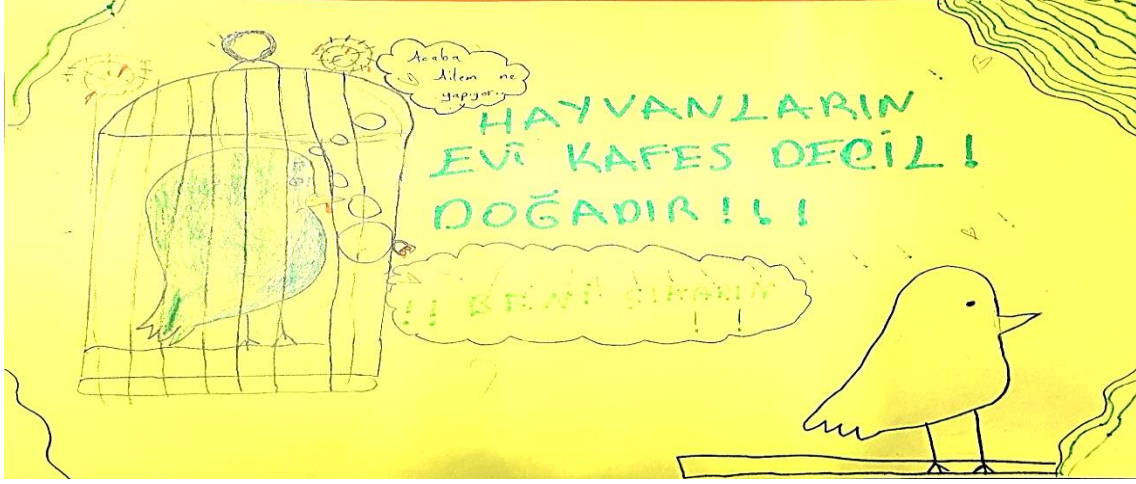 Acaba
Ailem ne
yapıyor
HAYVANLARIN
EVİ KAFES DEĞİL!
DOĞADIR!!!
!! BENİ ÇIKARIN !!